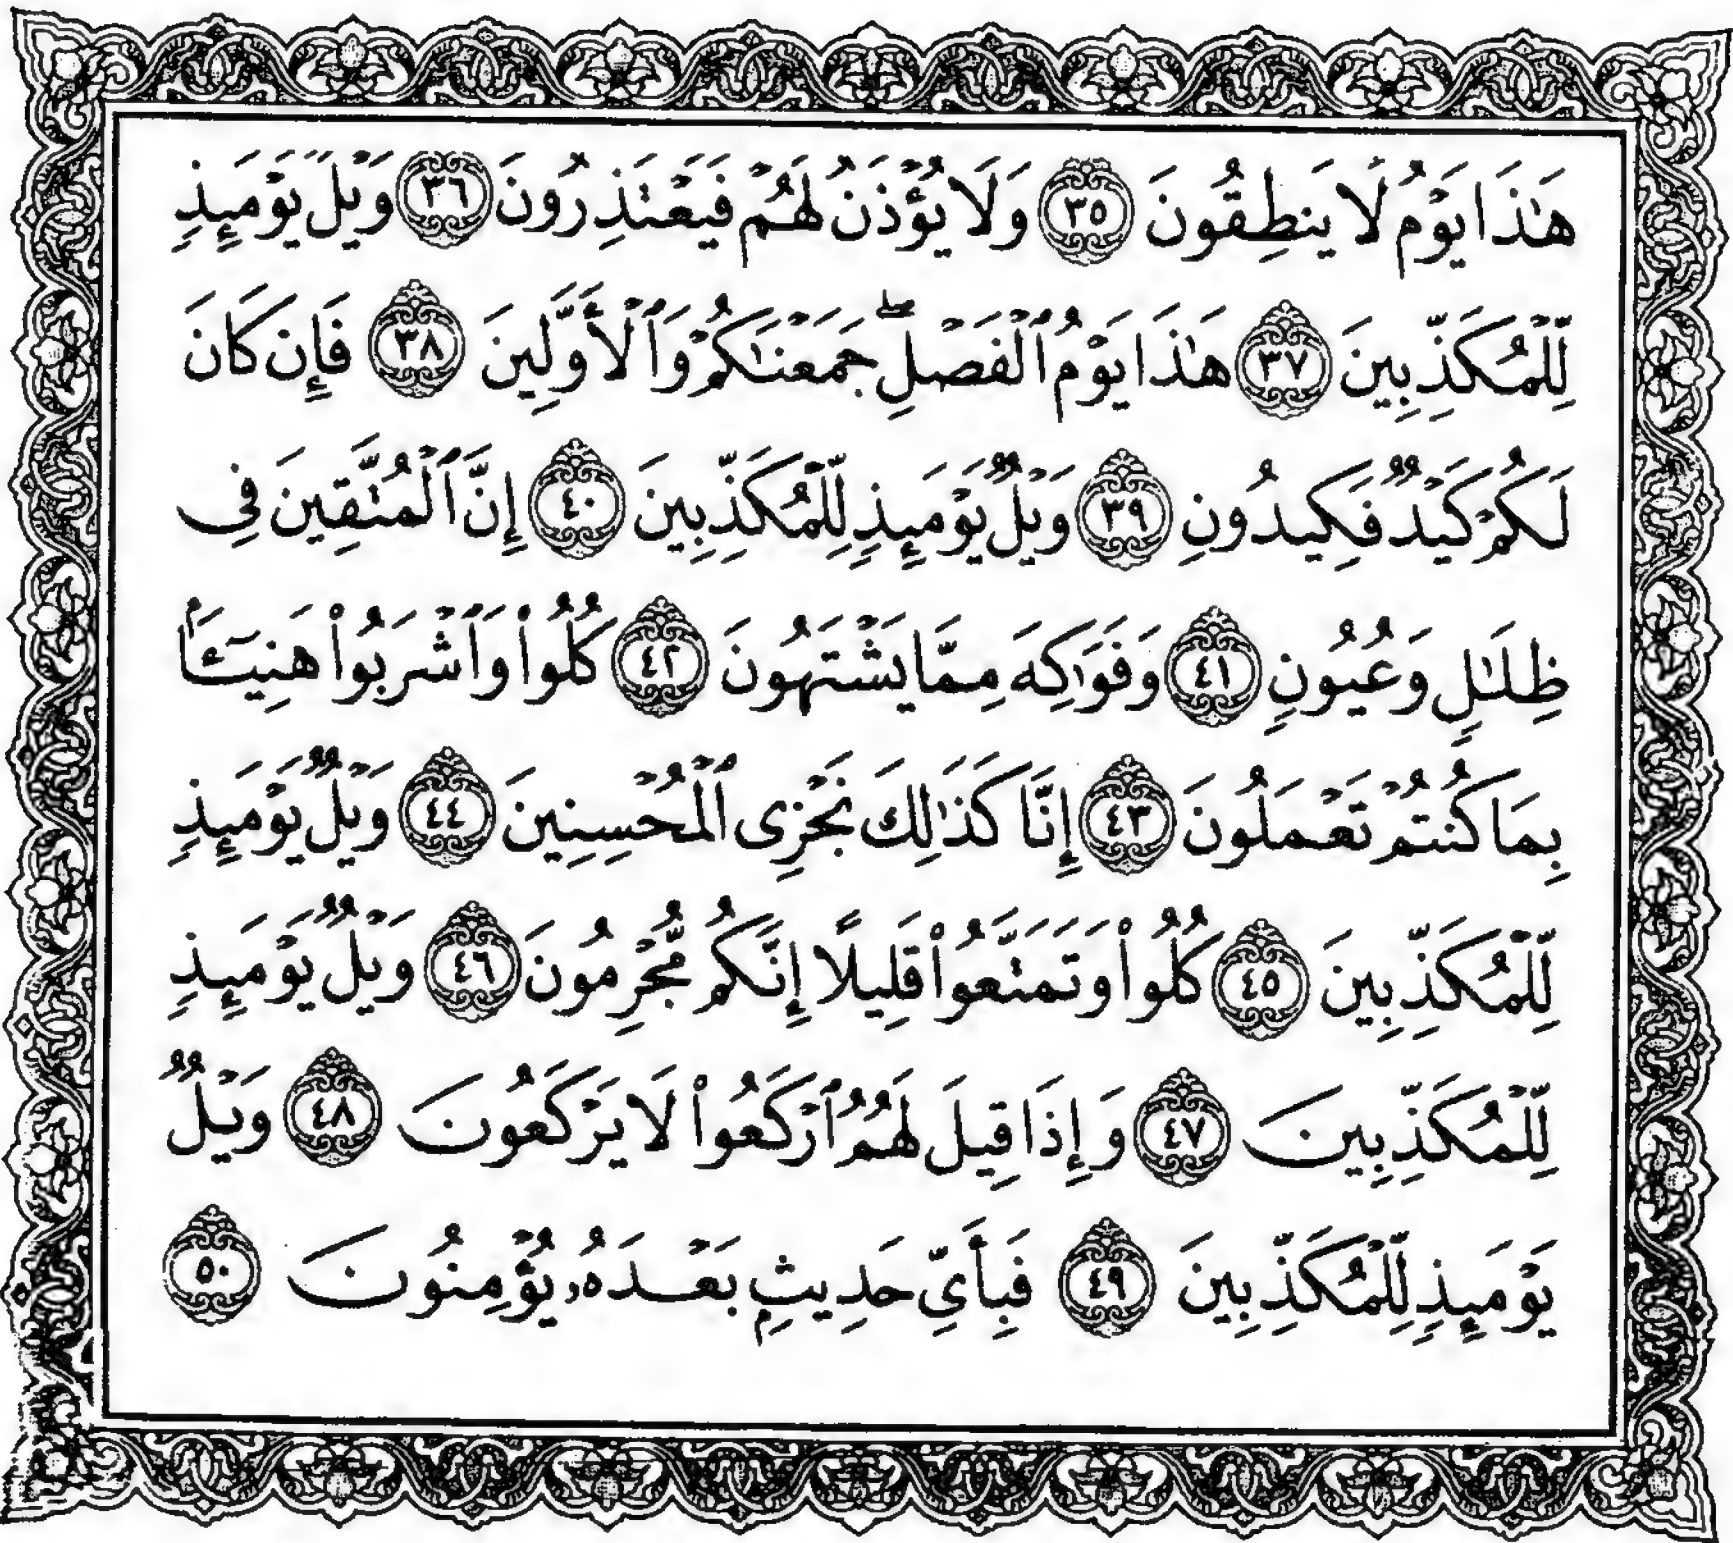 هَٰذَا يَوْمُ لَا يَنطِقُونَ ٣٥ وَلَا يُؤْذَنُ لَهُمْ فَيَعْتَذِرُونَ ٣٦ وَيْلٌ يَوْمَئِذٍ
لِّلْمُكَذِّبِينَ ٣٧ هَٰذَا يَوْمُ ٱلْفَصْلِ ۖ جَمَعْنَٰكُمْ وَٱلْأَوَّلِينَ ٣٨ فَإِن كَانَ
لَكُمْ كَيْدٌ فَكِيدُونِ ٣٩ وَيْلٌ يَوْمَئِذٍ لِّلْمُكَذِّبِينَ ٤٠ إِنَّ ٱلْمُتَّقِينَ فِى
ظِلَٰلٍ وَعُيُونٍ ٤١ وَفَوَٰكِهَ مِمَّا يَشْتَهُونَ ٤٢ كُلُوا۟ وَٱشْرَبُوا۟ هَنِيٓـَٔۢا
بِمَا كُنتُمْ تَعْمَلُونَ ٤٣ إِنَّا كَذَٰلِكَ نَجْزِى ٱلْمُحْسِنِينَ ٤٤ وَيْلٌ يَوْمَئِذٍ
لِّلْمُكَذِّبِينَ ٤٥ كُلُوا۟ وَتَمَتَّعُوا۟ قَلِيلًا إِنَّكُم مُّجْرِمُونَ ٤٦ وَيْلٌ يَوْمَئِذٍ
لِّلْمُكَذِّبِينَ ٤٧ وَإِذَا قِيلَ لَهُمُ ٱرْكَعُوا۟ لَا يَرْكَعُونَ ٤٨ وَيْلٌ
يَوْمَئِذٍ لِّلْمُكَذِّبِينَ ٤٩ فَبِأَىِّ حَدِيثٍۭ بَعْدَهُۥ يُؤْمِنُونَ ٥٠